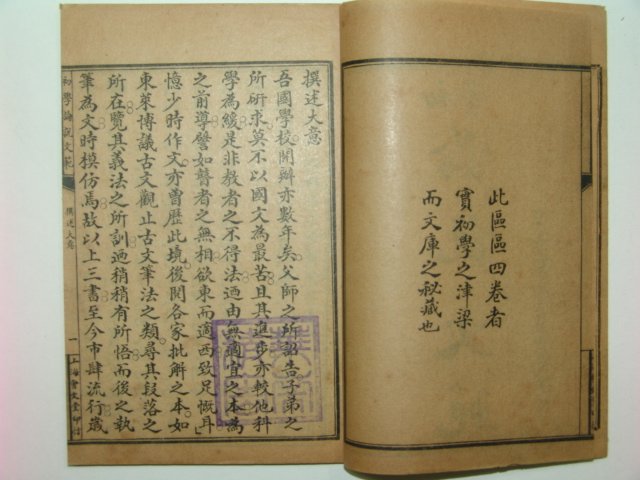 此區區四卷者
實初學之津梁
而文庫之秘藏也
撰述大意
吾國學校開辦亦數年矣父師之所詔告子弟之
所研求莫不以國文為最苦且其進步亦較他科
學為緩是非教者之不得法迺由無適宜之本為
之前導譬如瞽者之無相欲東而適西致足慨耳
憶少時作文亦曾歷此境後閱各家批解之本如
東萊博議古文觀止古文筆法之類尋其段落之
所在覽其義法之所訓迺稍稍有所悟而後之執
筆為文時模仿焉故以上三書至今市肆流行歲
初學論說文範
撰述大意
一
上海會文堂印行